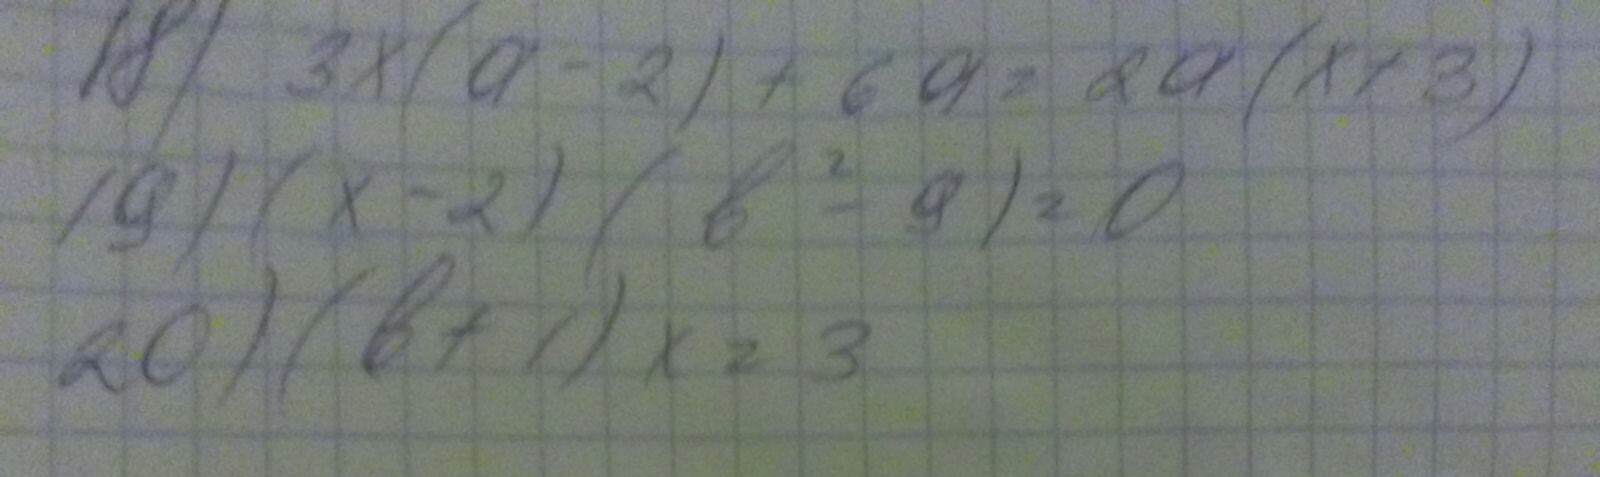 18) 3x(a-2)+6a=2a(x+3)
19) (x-2)(b²-9)=0
20) (b+1)x=3